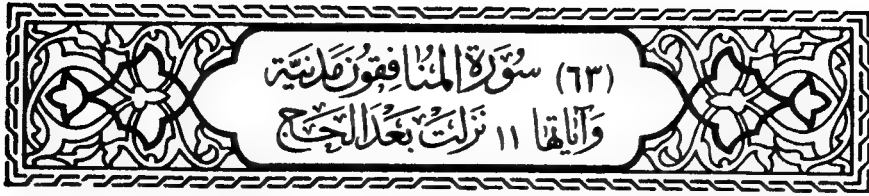 (٦٣) سُورَة المُنَافِقُونَ مَدَنِيَّة
وَآيَاتهَا ١١ نَزَلَتْ بَعْدَ الحَجّ